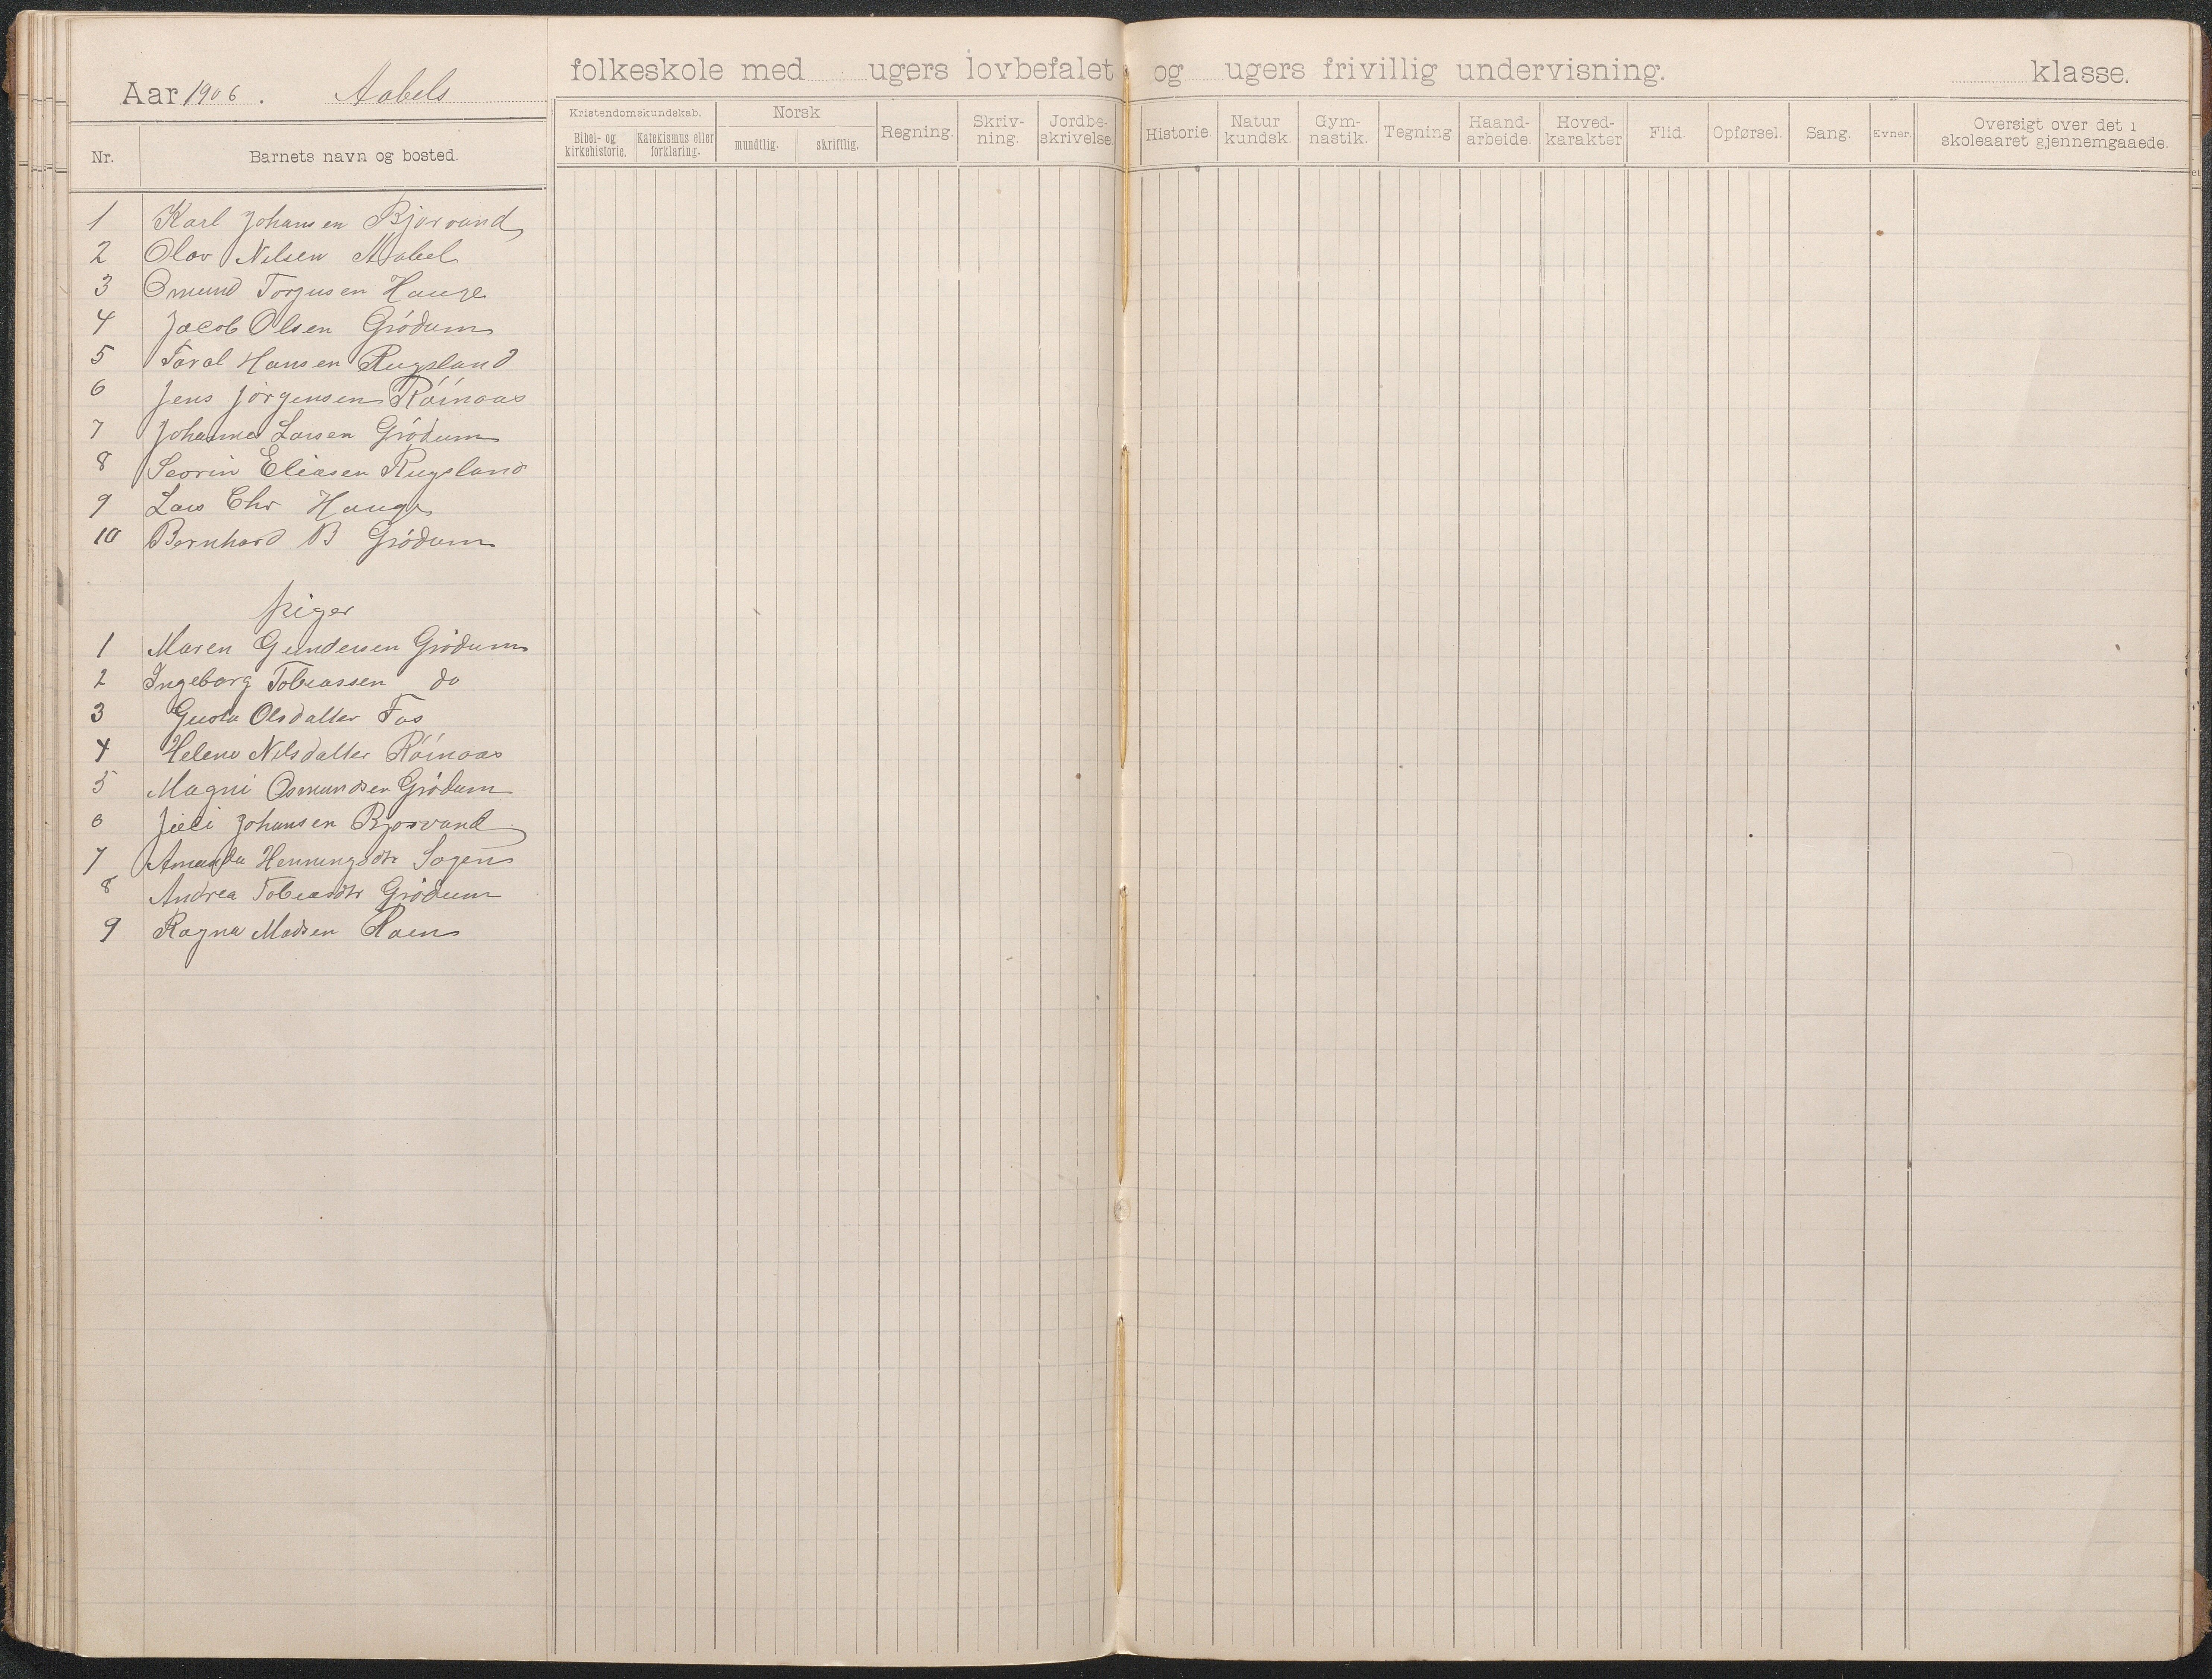 Aar 1906. Aabels folkeskole med ugers lovbefalet og ugers frivillig undervisning. klasse.
Nr.
Barnets navn og bosted.
Kristendomskundskab.
Bibel- og kirkehistorie.
Katekismus eller forklaring.
Norsk
mundtlig.
skriftlig.
Regning.
Skriv-
ning.
Jordbe-
skrivelse.
Historie.
Natur
kundsk.
Gym-
nastik.
Tegning
Haand-
arbeide.
Hoved-
karakter
Flid.
Opførsel.
Sang.
Evner.
Oversigt over det i
skoleaaret gjennemgaaede.
1 Karl Johansen Bjorvand
2 Olav Nilsen Aabel
3 Osmund Torjusen Hauge
4 Jacob Olsen Grödum
5 Taral Hansen Rugsland
6 Jens Jörgensen Röinaas
7 Johannes Larsen Grödum
8 Severin Eliasen Rugsland
9 Lars Chr Hauge
10 Bernhard B Grödum
piger
1 Maren Gundersen Grödum
2 Ingeborg Tobiassen do
3 Gusta Olsdatter Fos
4 Helene Nilsdatter Röinaas
5 Magni Osmundsen Grödum
6 Johansen Bjorvand
7 Amanda Henningsdtr Sagen
8 Andrea Tobiasdtr Grödum
9 Ragna Madsen Raen